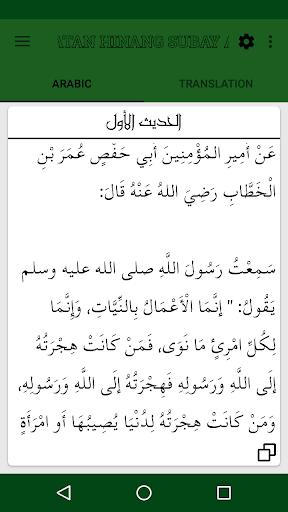 ATAN HINANG SUBAY A
ARABIC
TRANSLATION
الحديث الأول
عَنْ أَمِيرِ المُؤْمِنِينَ أَبِي حَفْصٍ عُمَرَ بْنِ
الْخَطَّابِ رَضِيَ اللهُ عَنْهُ قَالَ:
سَمِعْتُ رَسُولَ اللَّهِ صلى الله عليه وسلم
يَقُولُ: " إنَّمَا الْأَعْمَالُ بِالنِّيَّاتِ، وَإِنَّمَا
لِكُلِّ امْرِئٍ مَا نَوَى، فَمَنْ كَانَتْ هِجْرَتُهُ
إلَى اللَّهِ وَرَسُولِهِ فَهِجْرَتُهُ إلَى اللَّهِ وَرَسُولِهِ،
وَمَنْ كَانَتْ هِجْرَتُهُ لِدُنْيَا يُصِيبُهَا أَو امْرَأَةٍ